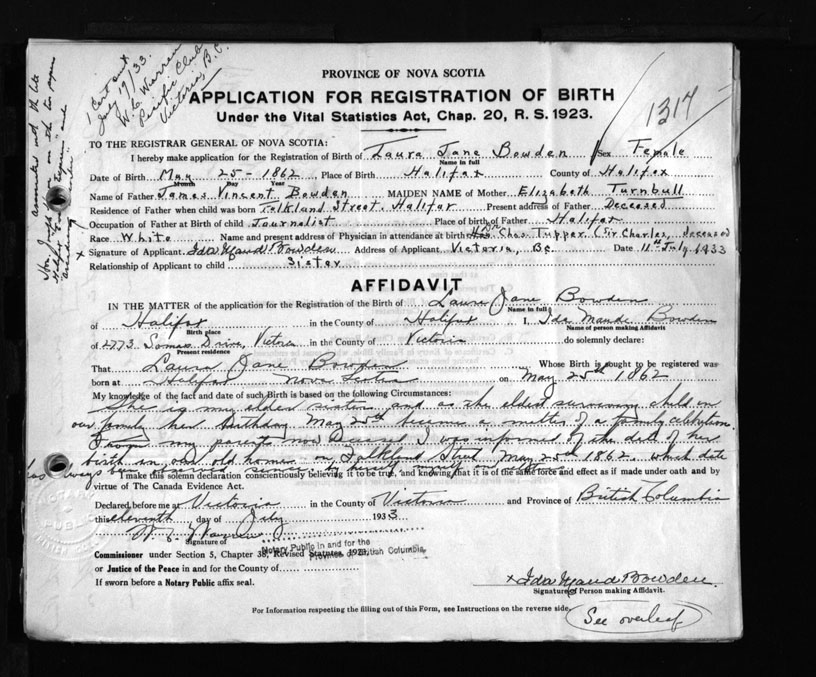 1 Cert sent
July 19/33.
W. C. Warren
Pacific Club
Victoria, B.C.
1317
PROVINCE OF NOVA SCOTIA
APPLICATION FOR REGISTRATION OF BIRTH
Under the Vital Statistics Act, Chap. 20, R. S. 1923.
TO THE REGISTRAR GENERAL OF NOVA SCOTIA:
I hereby make application for the Registration of Birth of Laura Jane Bowden Sex Female
Name in full
Date of Birth May 25-1862, Place of Birth Halifax County of Halifax
Month Day Year
Name of Father James Vincent Bowden MAIDEN NAME of Mother Elizabeth Turnbull
Residence of Father when child was born Falkland Street, Halifax Present address of Father Deceased
Occupation of Father at Birth of child Journalist Place of birth of Father Halifax
Race White Name and present address of Physician in attendance at birth Chas. Tupper (Sir Charles, deceased
x Signature of Applicant Ida Maud Bowden Address of Applicant Victoria, Bc. Date 11th July 1933
Relationship of Applicant to child Sister
AFFIDAVIT
IN THE MATTER of the application for the Registration of the Birth of Laura Jane Bowden
Name in full
of Halifax in the County of Halifax I, Ida Maude Bowden
Birth place Name of person making Affidavit
of 2773 Somas Drive, Victoria in the County of Victoria do solemnly declare:
Present residence
That Laura Jane Bowden Whose Birth is sought to be registered was
born at Halifax Nova Scotia on May 25th 1862
My knowledge of the fact and date of such Birth is based on the following Circumstances:
She is my elder sister, and as the eldest surviving child in
our family her birthday May 25th became a matter of a family celebration.
From my parents now deceased I was informed of the date of her
birth in our old home on Falkland Street May 25th 1862. which date
has always been observed
I make this solemn declaration conscientiously believing it to be true, and knowing that it is of the same force and effect as if made under oath and by
virtue of The Canada Evidence Act.
Declared before me at Victoria in the County of Victoria and Province of British Columbia
this eleventh day of July 1933
W. C. Warren
Signature of
Notary Public in and for the
Province of British Columbia.
Commissioner under Section 5, Chapter 38, Revised Statutes, 1923,
or Justice of the Peace in and for the County of
If sworn before a Notary Public affix seal.
x Ida Maud Bowden
Signature of Person making Affidavit.
For Information respecting the filling out of this Form, see Instructions on the reverse side.
See overleaf